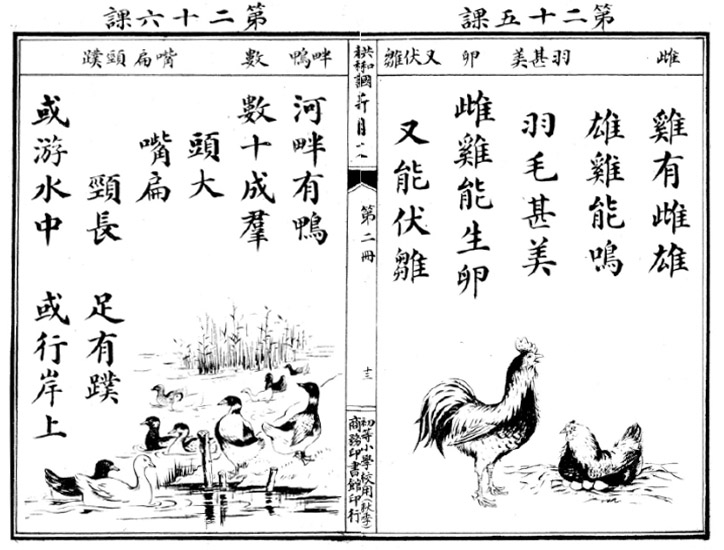 第二十五課
雌
羽甚美
卵
又伏雛
雞有雌雄
雄雞能鳴
羽毛甚美
雌雞能生卵
又能伏雛
第二冊
十三
初等小學校用(秋季)
商務印書館印行
第二十六課
畔鴨
數
嘴扁頸蹼
河畔有鴨
數十成羣
頭大
嘴扁
頸長 足有蹼
或游水中 或行岸上